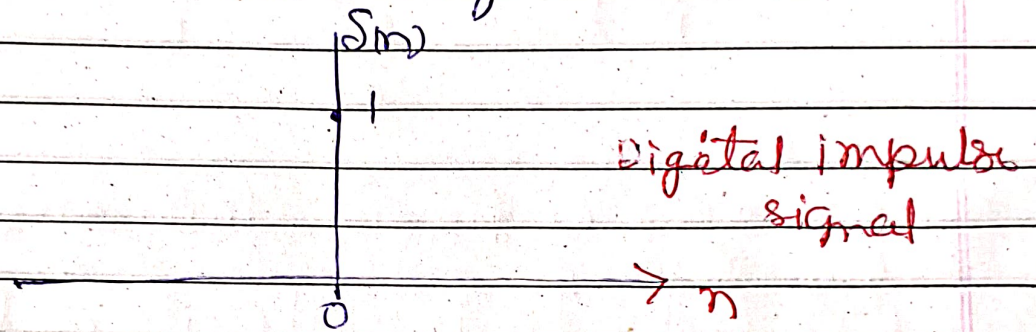 δ(n)
1
Digital impulse
signal
n
0